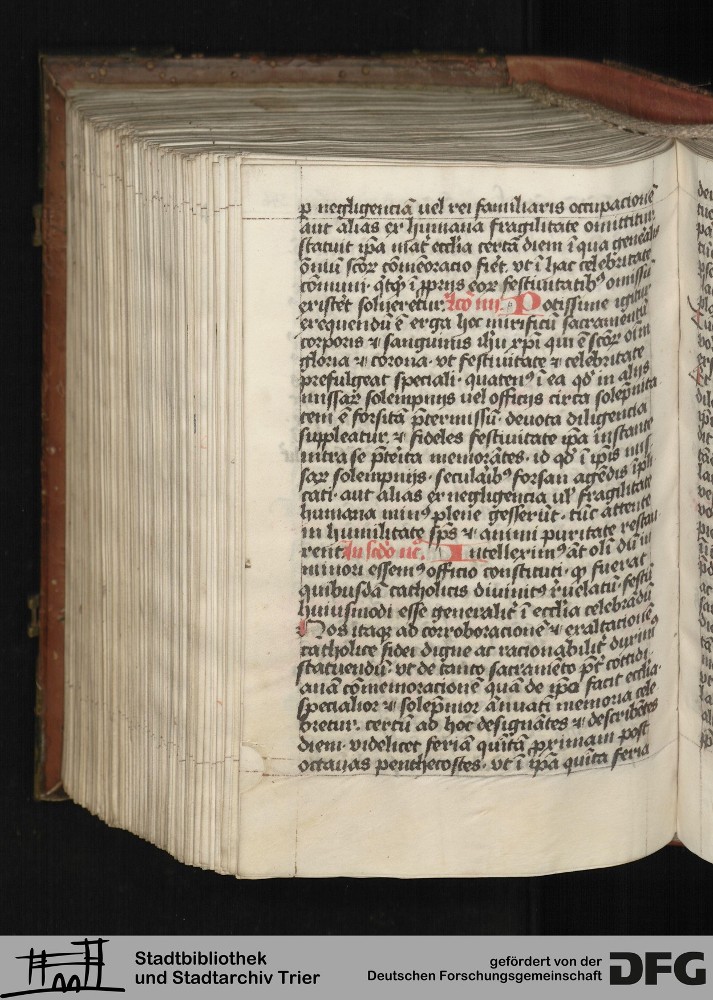 ꝑ negligenciā uel rei familiaris occupacionē
aut alias ex humana fragilitate omittitur
statuit ip̄a mat̄ ecclia certā diem ī qua generalis
om̄iū scōꝝ cōmēoracio fiet̄. vt ī hac celebritate
cōmuni. qͥcqͥd ī ꝓprijs eoꝝ festiuitatibꝰ omissū
existet̄ solueretur. Lc̄o iiii. Potissime igitur
exequendū ē erga hoc mirificū sacramentū
corporis ⁊ sanguinis ih̄u xp̄i qui ē scōꝝ oīm
gloria ⁊ corona. vt festiuitate ⁊ celebritate
prefulgeat speciali. quatenꝰ ī ea qd̓ in alijs
missaꝝ solempnijs uel officijs circa solēpnita
tem ē forsitā p̄termissū. deuota diligencia
suppleatur. ⁊ fideles festiuitate ip̄a instante
intra se p̄teita memorātes. id qd̓ ī ip̄is mis
saꝝ solempnijs. seculaibꝰ forsan agēdis īpli
cati. aut alias ex negligencia ul̓ fragilitate
humana minꝰ plene gesserūt. tūc attente
in humilitate sp̄s ⁊ animi puritate restau
rent. In scd̓o nc̄. Intelleximꝰ āt oli dū ī
minori essemꝰ officio constituti. ꝙ fuerat
quibusdā catholicis diuinitꝰ r̄uelatū. festū
huiusmodi esse generalit̓ ī ecclia celebrādū
Nos itaqꝫ ad corroboracionē ⁊ exaltacionē
catholice fidei digne ac racionabilit̓ duximꝰ
statuendū. vt de tanto sacramēto p̄t cottidi
anā cōmemoracionē quā de ip̄o facit ecclia.
specialior ⁊ solēpnior ānuati memoria cele
bretur. certū ad hoc designātes ⁊ describētes
diem. videlicet feriā quītā primam post
octauas penthecostes. vt ī ip̄a quīta feria
Stadtbibliothek
und Stadtarchiv Trier
gefördert von der
Deutschen Forschungsgemeinschaft
DFG